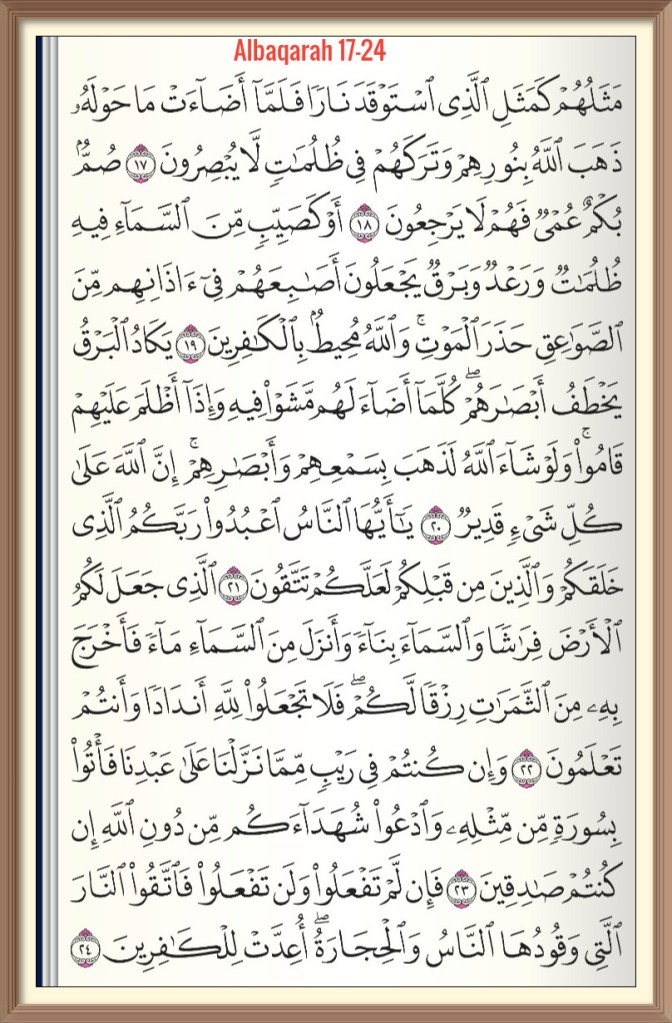 Albaqarah 17-24
مَثَلُهُمۡ كَمَثَلِ ٱلَّذِي ٱسۡتَوۡقَدَ نَارٗا فَلَمَّآ أَضَآءَتۡ مَا حَوۡلَهُۥ
ذَهَبَ ٱللَّهُ بِنُورِهِمۡ وَتَرَكَهُمۡ فِي ظُلُمَٰتٖ لَّا يُبۡصِرُونَ ١٧ صُمُّۢ
بُكۡمٌ عُمۡيٞ فَهُمۡ لَا يَرۡجِعُونَ ١٨ أَوۡ كَصَيِّبٖ مِّنَ ٱلسَّمَآءِ فِيهِ
ظُلُمَٰتٞ وَرَعۡدٞ وَبَرۡقٞ يَجۡعَلُونَ أَصَٰبِعَهُمۡ فِيٓ ءَاذَانِهِم مِّنَ
ٱلصَّوَٰعِقِ حَذَرَ ٱلۡمَوۡتِۚ وَٱللَّهُ مُحِيطُۢ بِٱلۡكَٰفِرِينَ ١٩ يَكَادُ ٱلۡبَرۡقُ
يَخۡطَفُ أَبۡصَٰرَهُمۡۖ كُلَّمَآ أَضَآءَ لَهُم مَّشَوۡاْ فِيهِ وَإِذَآ أَظۡلَمَ عَلَيۡهِمۡ
قَامُواْۚ وَلَوۡ شَآءَ ٱللَّهُ لَذَهَبَ بِسَمۡعِهِمۡ وَأَبۡصَٰرِهِمۡۚ إِنَّ ٱللَّهَ عَلَىٰ
كُلِّ شَيۡءٖ قَدِيرٞ ٢٠ يَٰٓأَيُّهَا ٱلنَّاسُ ٱعۡبُدُواْ رَبَّكُمُ ٱلَّذِي
خَلَقَكُمۡ وَٱلَّذِينَ مِن قَبۡلِكُمۡ لَعَلَّكُمۡ تَتَّقُونَ ٢١ ٱلَّذِي جَعَلَ لَكُمُ
ٱلۡأَرۡضَ فِرَٰشٗا وَٱلسَّمَآءَ بِنَآءٗ وَأَنزَلَ مِنَ ٱلسَّمَآءِ مَآءٗ فَأَخۡرَجَ
بِهِۦ مِنَ ٱلثَّمَرَٰتِ رِزۡقٗا لَّكُمۡۖ فَلَا تَجۡعَلُواْ لِلَّهِ أَندَادٗا وَأَنتُمۡ
تَعۡلَمُونَ ٢٢ وَإِن كُنتُمۡ فِي رَيۡبٖ مِّمَّا نَزَّلۡنَا عَلَىٰ عَبۡدِنَا فَأۡتُواْ
بِسُورَةٖ مِّن مِّثۡلِهِۦ وَٱدۡعُواْ شُهَدَآءَكُم مِّن دُونِ ٱللَّهِ إِن
كُنتُمۡ صَٰدِقِينَ ٢٣ فَإِن لَّمۡ تَفۡعَلُواْ وَلَن تَفۡعَلُواْ فَٱتَّقُواْ ٱلنَّارَ
ٱلَّتِي وَقُودُهَا ٱلنَّاسُ وَٱلۡحِجَارَةُۖ أُعِدَّتۡ لِلۡكَٰفِرِينَ ٢٤